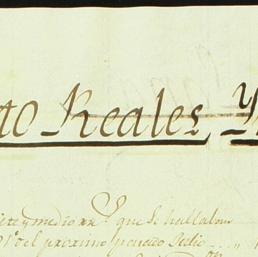 to Reales, y
siete y medio rr.^s que se hallaban
01.^o del proximo pasado Julio